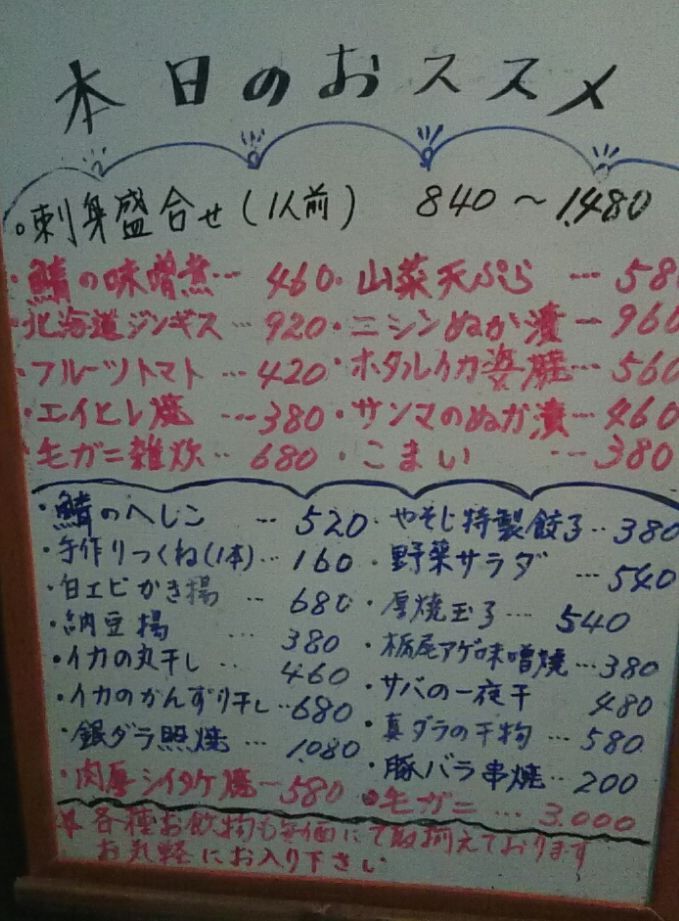 本日のおススメ
・刺身盛合せ(1人前) 840〜1,480
・鯖の味噌煮… 460
・山菜天ぷら … 580
・北海道ジンギス … 920
・ニシンぬか漬 ー 960
・フルーツトマト … 420
・ホタルイカ姿焼 … 560
・エイヒレ焼 … 380
・サンマのぬか漬 … 460
・毛ガニ雑炊 … 680
・こまい … 380
・鯖のへしこ … 520
・やそじ特製餃子… 380
・手作りつくね(1本)… 160
・野菜サラダ … 540
・白エビかき揚 … 680
・厚焼玉子… 540
・納豆揚 … 380
・栃尾アゲ味噌焼… 380
・イカの丸干し … 460
・サバの一夜干 480
・イカのかんずり干し… 680
・真ダラの干物… 580
・銀ダラ照焼 … 1,080
・豚バラ串焼… 200
・肉厚シイタケ焼ー 580
・毛ガニ … 3,000
※各種お飲物も安価にて取揃えております
お気軽にお入り下さい